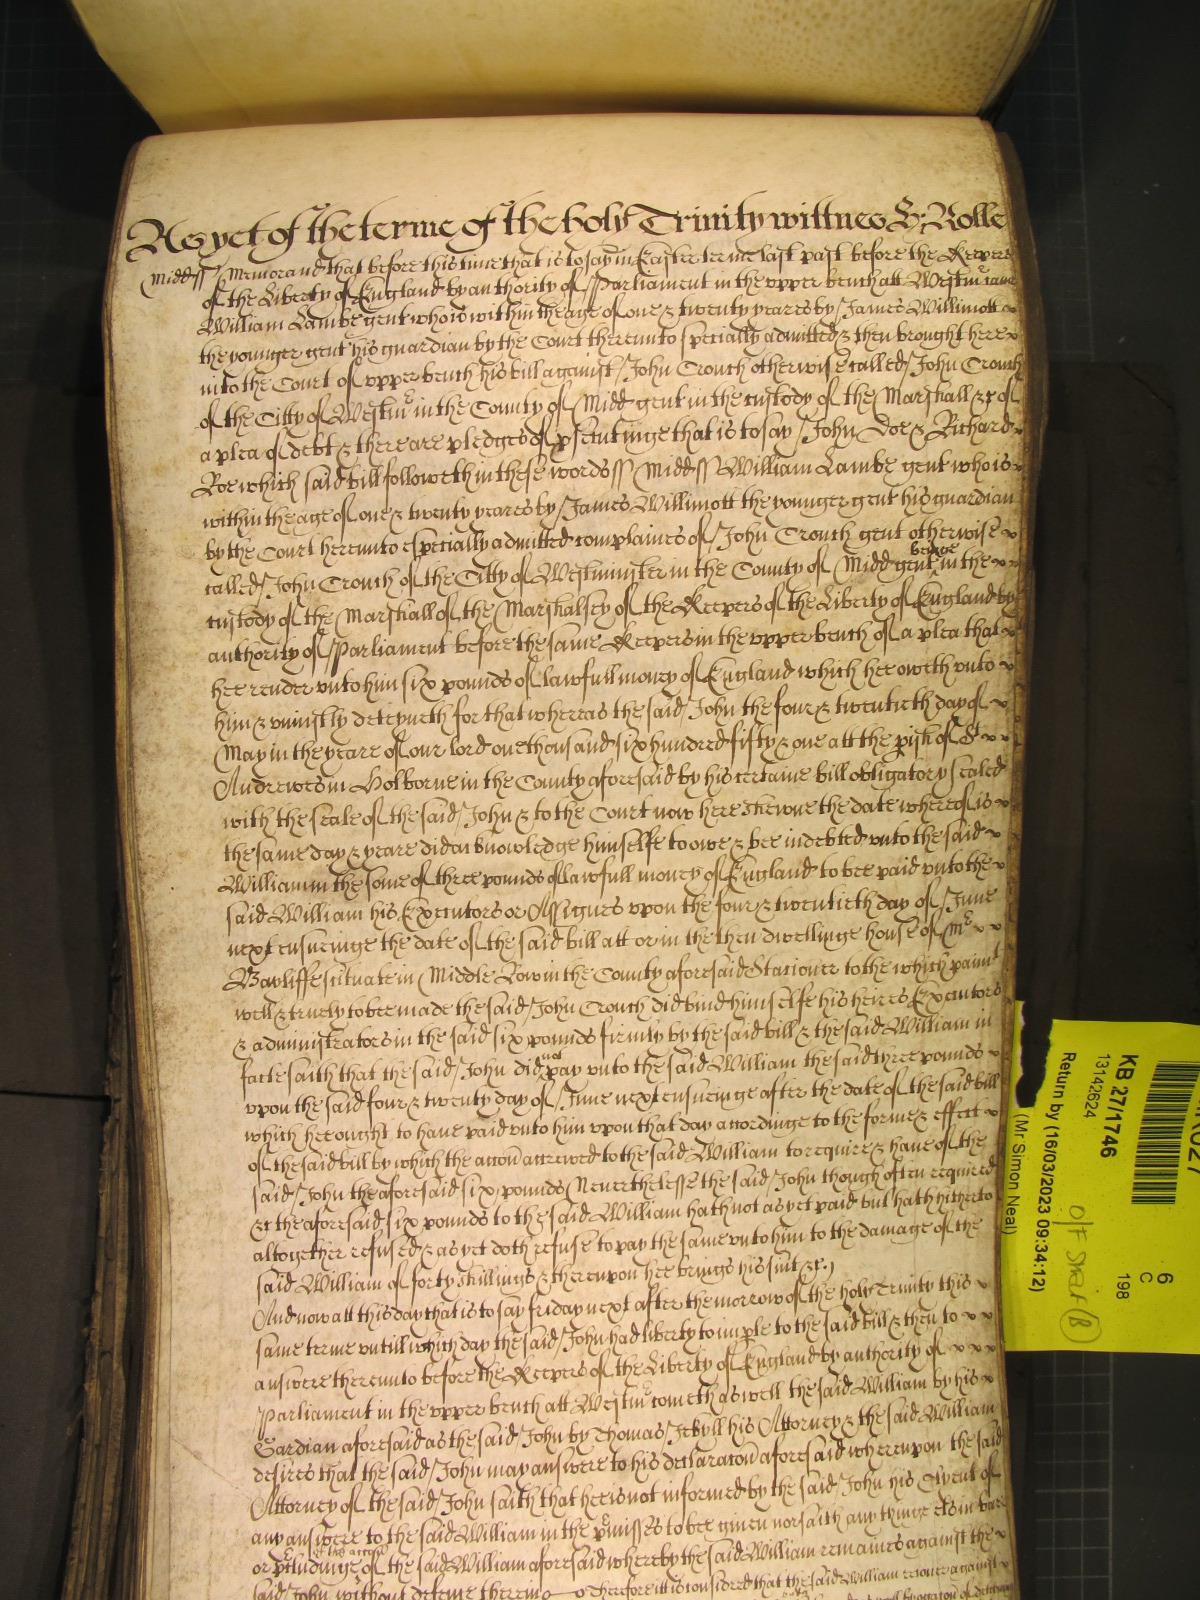 As yet of the terme of the holy Trinity wittnes H: Rolle
Midd ss Memorand that before this time that is to say in Easter terme last past before the Keepers
of the Liberty of England by authority of Parliament in the upper bench att Westmr came
William Lambe gent who is within the age of one & twenty yeares by James Willimott
the younger gent his guardian by the Court thereunto specially admitted & then brought here
into the Court of upper bench his bill against John Crouch otherwise called John Crouch
of the Citty of Westmr in the County of Midd gent in the custody of the Marshall &c of
a plea of debt & there are pledges of psecutinge that is to say John Doe & Richard
Roe which said bill followeth in these words ss Midd ss William Lambe gent who is
within the age of one & twenty yeares by James Willimott the younger gent his guardian
by the Court hereunto especially admitted complaines of John Crouch gent otherwise
called John Crouch of the Citty of Westminster in the County of Midd gent beinge in the
custody of the Marshall of the Marshalsey of the Keepers of the Liberty of England by
authority of Parliament before the same Keepers in the upper bench of a plea that
hee render unto him six pounds of lawfull money of England which hee oweth unto
him & uniustly deteyneth for that whereas the said John the four & twentieth day of
May in the yeare of our lord one thousand six hundred fifty & one att the pish of St
Andrewes in Holborne in the County aforesaid by his certaine bill obligatory sealed
with the seale of the said John & to the Court now here shewne the date whereof is
the same day & yeare did acknowledge himselfe to owe & bee indebted unto the said
William in the some of three pounds of lawfull money of England to bee paid unto the
said William his Executors or Assignes upon the four & twentieth day of June
next ensueinge the date of the said bill att or in the then dwellinge house of Mr
Bayliffe scituate in Middle Row in the County aforesaid Stationer to the which paimt
well & truely to bee made the said John Crouch did bind himselfe his heires Executors
& administrators in the said six pounds firmly by the said bill & the said William in
facte saith that the said John did not pay unto the said William the said three pounds
upon the said four & twenty day of June next ensueinge after the date of the said bill
which hee ought to have paid unto him upon that day accordinge to the forme & effect
of the said bill by which the accon accrewed to the said William to require & have of the
said John the aforesaid six pounds Neverthelesse the said John though often required
&c the aforesaid six pounds to the said William hath not as yet paid but hath hitherto
altogether refused & as yet doth refuse to pay the same unto him to the damage of the
said William of forty shillings & thereupon hee brings his suit &c.
And now att this day that is to say friday next after the morrow of the holy Trinity this
same terme untill which day the said John had liberty to imple to the said bill & then to
answere thereunto before the Keepers of the Liberty of England by authority of
Parliament in the upper bench att Westmr cometh as well the said William by his
Gardian aforesaid as the said John by Thomas Jekyll his Attorney & the said William
desires that the said John may answere to his declaracon aforesaid whereupon the said
Attorney of the said John saith that hee is not informed by the said John his Clyent of
any answere to the said William in the pmisses to bee given nor saith any thinge els in barr
or pcludinge of the accon of the said William aforesaid whereby the said William remaines against the
said John without defence therein Therefore itt is considered that the said William recover against
KB 27/1746
13142624
Return by (16/03/2023 09:34:12)
(Mr Simon Neal)
6
C
198
O/F Shelf (B)